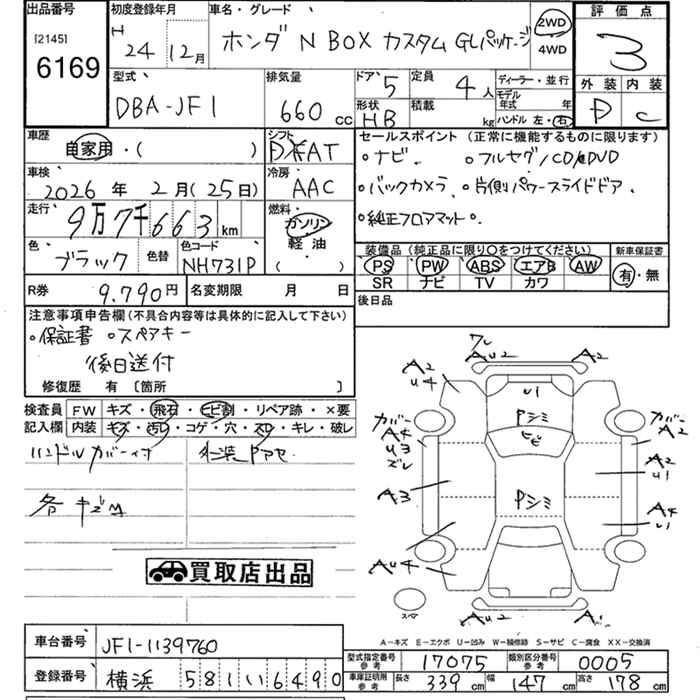 出品番号 初度登録年月 車名・グレード 評価点
[2145] H 24 12月 ホンダ N BOX カスタム GLパッケージ 2WD 4WD 3
6169
型式 排気量 ドア 定員 ディーラー・並行 外装 内装
DBA-JF1 660cc 5 4人 モデル年式 年 D C
形状 積載
HB kg ハンドル 左・右
車歴 シフト セールスポイント (正常に機能するものに限ります)
自家用・( ) FAT ・ナビ ・フルセグ/CD/DVD
車検 冷房 ・バックカメラ ・片側パワースライドドア
2026年 2月(25日) AAC ・純正フロアマット
走行 燃料
9万7千663km ガソリン
軽油
( )
色 色替 色コード 装備品 (純正品に限り○をつけてください) 新車保証書
ブラック NH731P PS PW ABS エアB AW 有・無
SR ナビ TV カワ
R券 9,790円 名変期限 月 日 後日品
注意事項申告欄(不具合内容等は具体的に記入して下さい)
・保証書 ・スペアキー
後日送付
修復歴 有 [箇所 ]
検査員記入欄 FW キズ・飛石・ヒビ割・リペア跡・×要
内装 キズ・汚レ・コゲ・穴・スレ・キレ・破レ
ハンドルカバー付 外装Pアセ
各キズ凹
買取店出品
ワレ
AU2 A2
A2
U4
U1
Pシミ
ヒビ
カバー カバー
A4 A2
U3
ズレ A2
U1
A3
Pシミ
A4
U1
AU4
スペア
AU2
A-キズ E-エクボ U-凹み W-補修跡 S-サビ C-腐食 XX-交換済
車台番号 JF1-1139760
登録番号 横浜 581 い 6490
型式指定番号 参考 17075 類別区分番号 参考 0005
車庫証明用 参考 長さ 339cm 幅 147cm 高さ 178cm